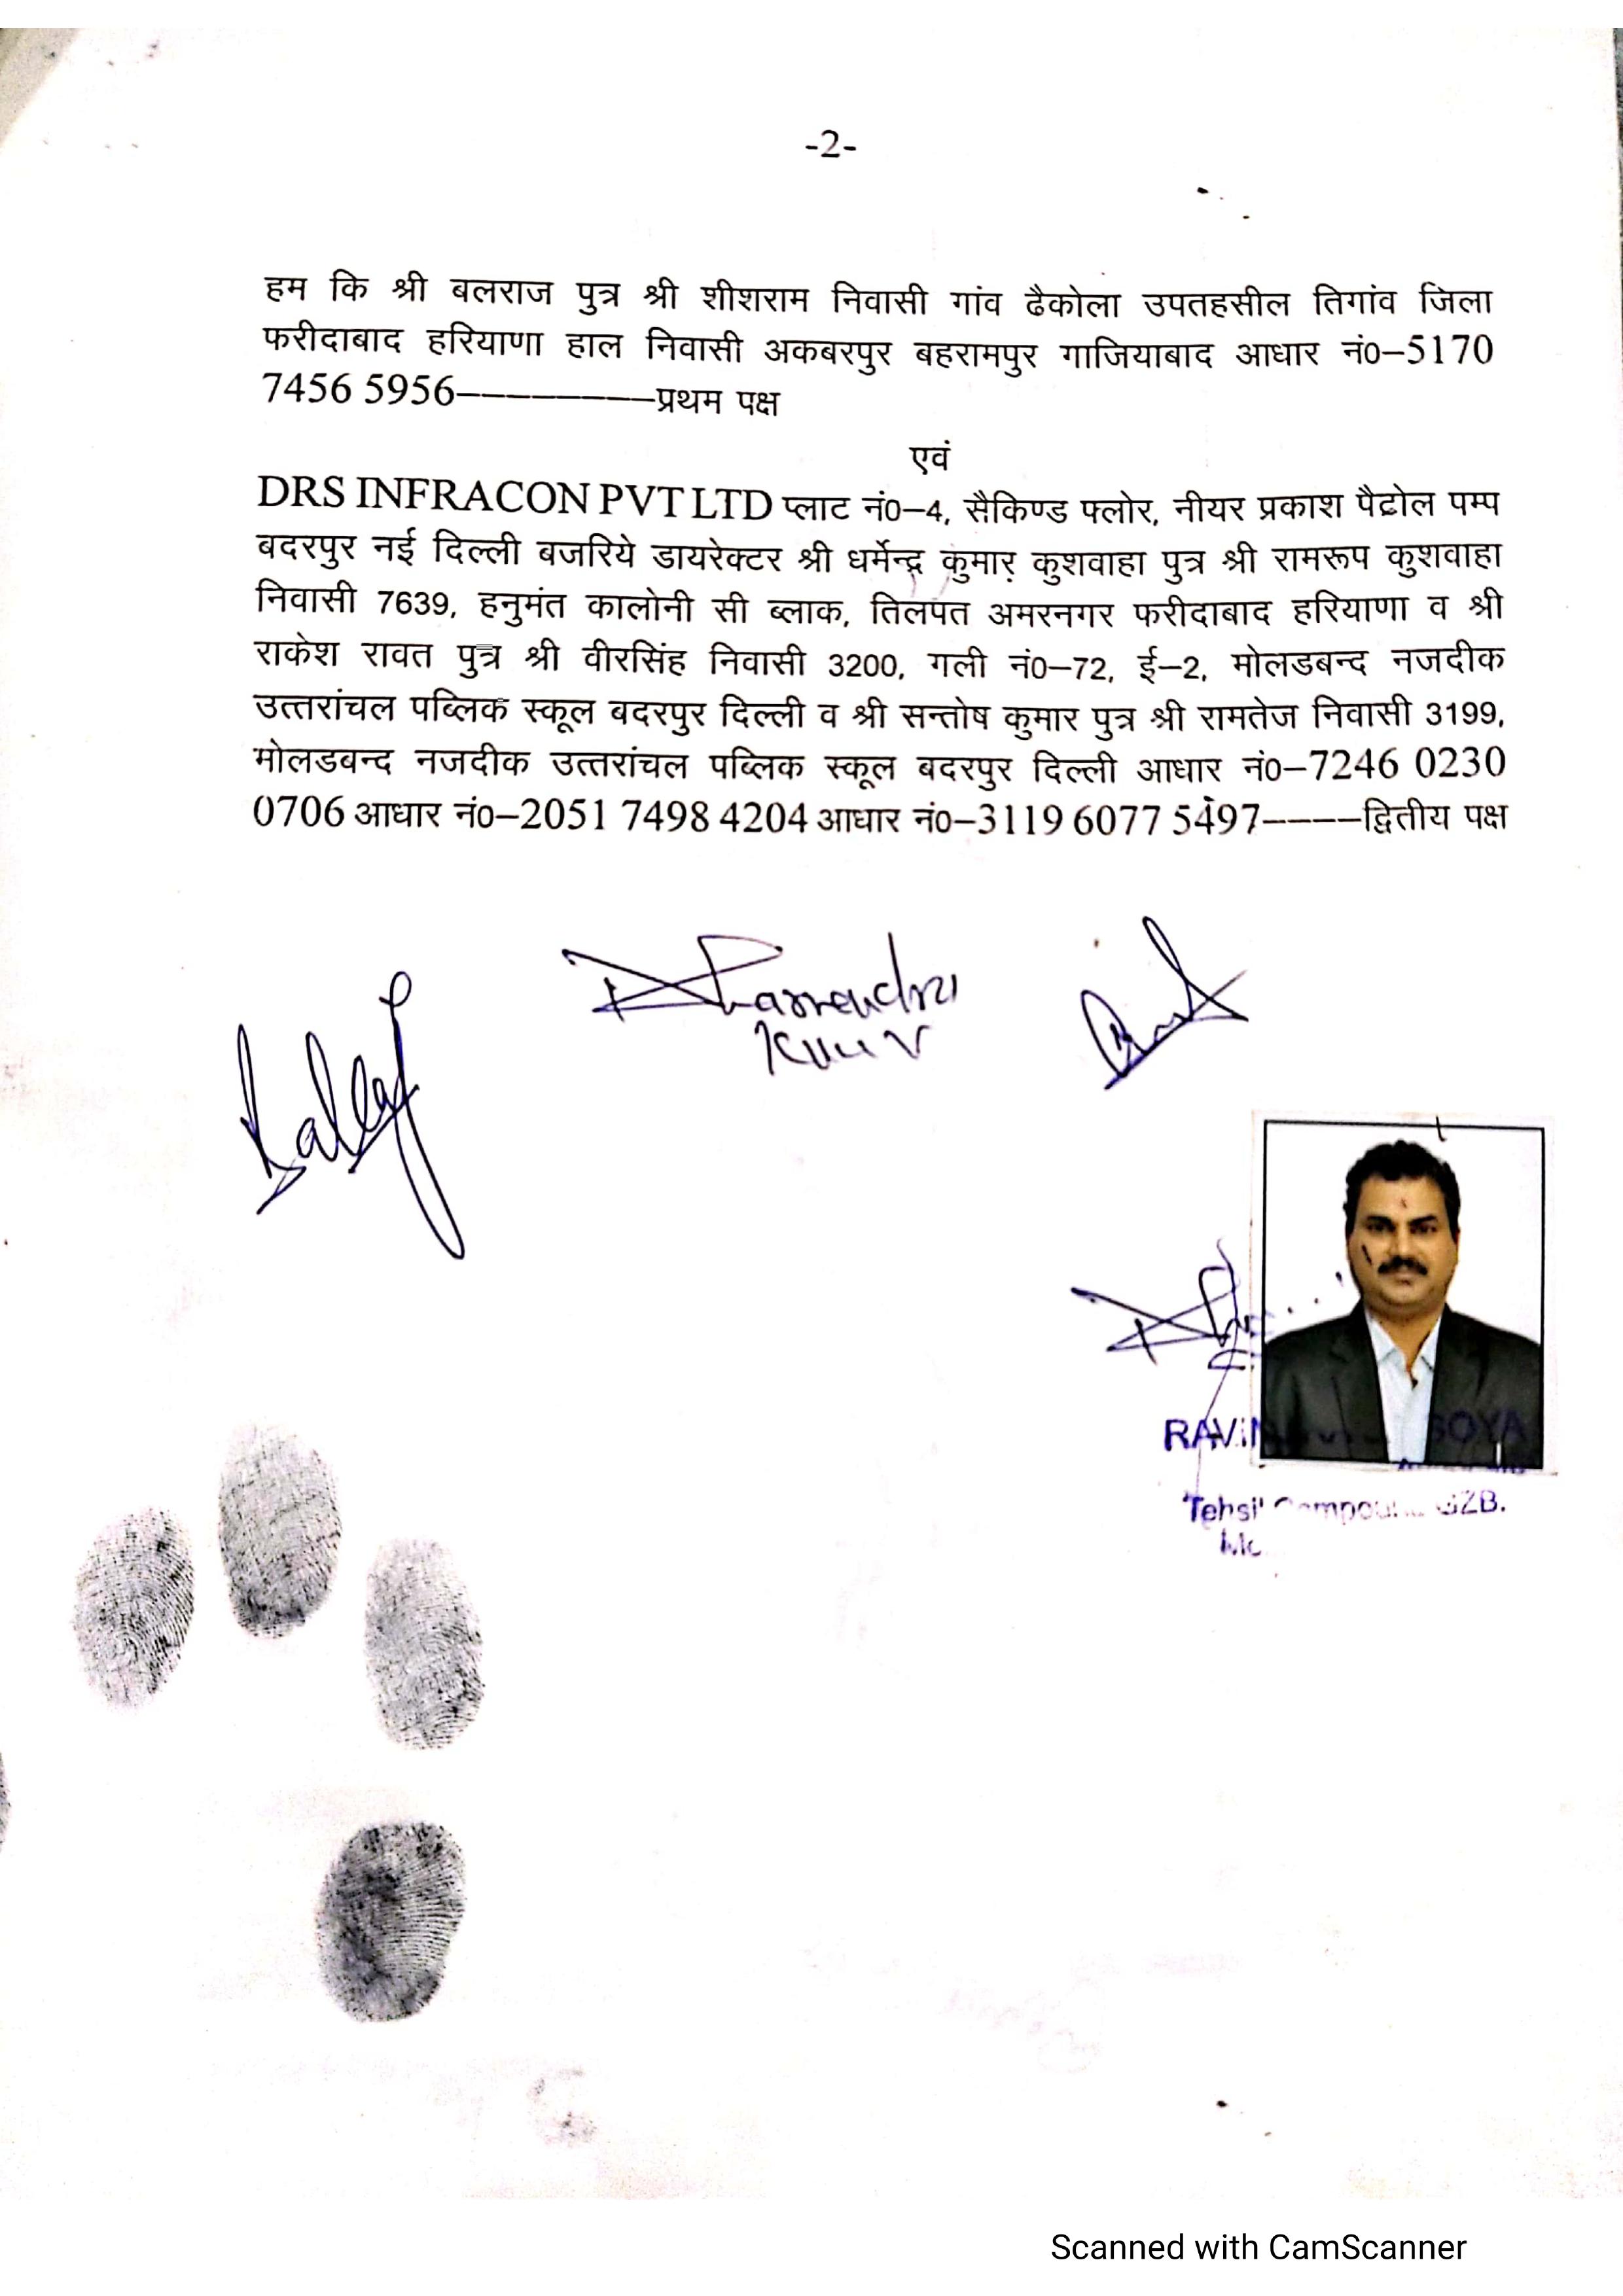 -2-
हम कि श्री बलराज पुत्र श्री शीशराम निवासी गांव ढैकोला उपतहसील तिगांव जिला
फरीदाबाद हरियाणा हाल निवासी अकबरपुर बहरामपुर गाजियाबाद आधार नं0–5170
7456 5956––––––––प्रथम पक्ष
एवं
DRS INFRACON PVT LTD प्लाट नं0–4, सैकिण्ड फ्लोर, नीयर प्रकाश पैट्रोल पम्प
बदरपुर नई दिल्ली बजरिये डायरेक्टर श्री धर्मेन्द्र कुमार कुशवाहा पुत्र श्री रामरूप कुशवाहा
निवासी 7639, हनुमंत कालोनी सी ब्लाक, तिलपत अमरनगर फरीदाबाद हरियाणा व श्री
राकेश रावत पुत्र श्री वीरसिंह निवासी 3200, गली नं0–72, ई–2, मोलडबन्द नजदीक
उत्तरांचल पब्लिक स्कूल बदरपुर दिल्ली व श्री सन्तोष कुमार पुत्र श्री रामतेज निवासी 3199,
मोलडबन्द नजदीक उत्तरांचल पब्लिक स्कूल बदरपुर दिल्ली आधार नं0–7246 0230
0706 आधार नं0–2051 7498 4204 आधार नं0–3119 6077 5497––––द्वितीय पक्ष
Dharmendra
GZB.
Scanned with CamScanner